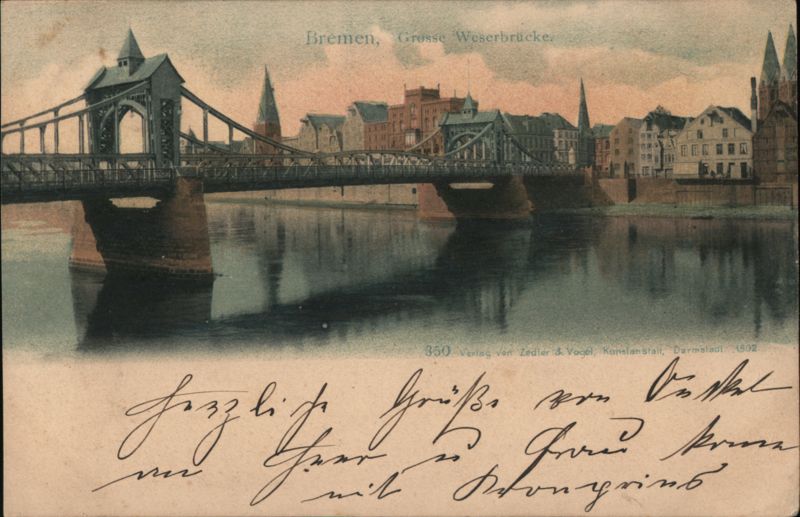 Bremen, Grosse Weserbrücke.
350 Verlag von Zedler & Vogel, Kunstanstalt, Darmstadt. 1902
Herzliche Grüße von Onkel
an Herr u Frau
mit Kronprins